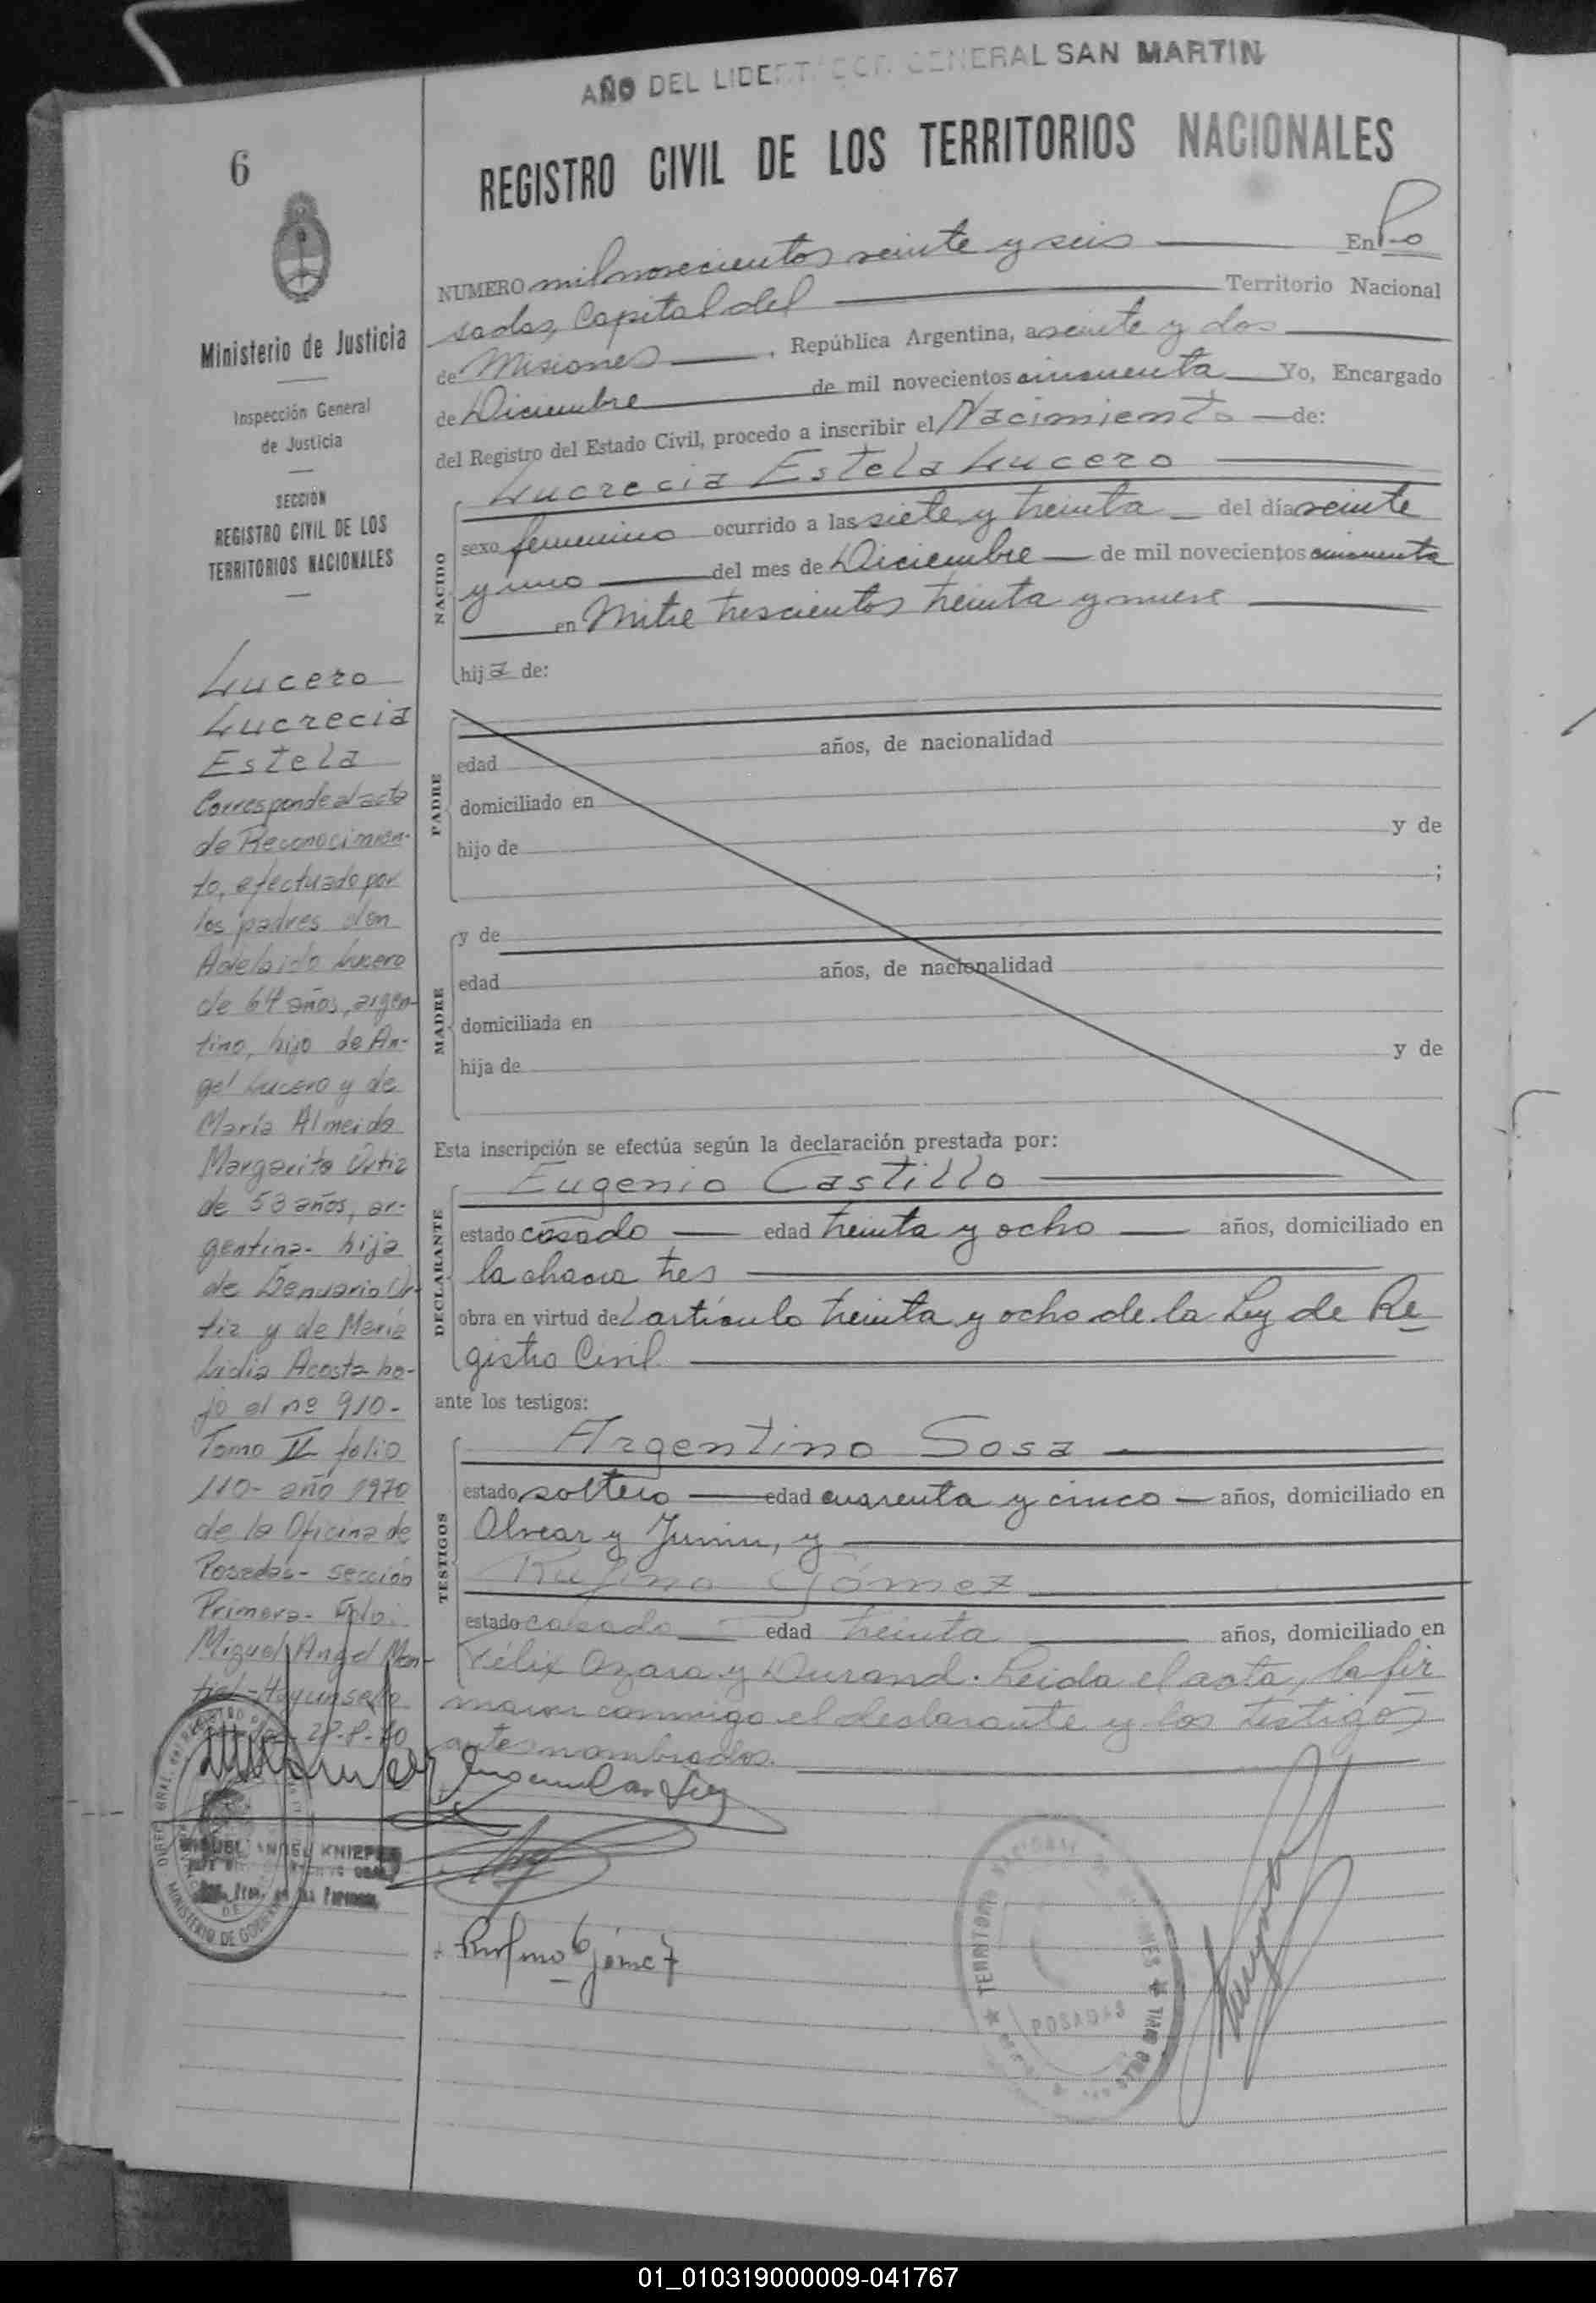 AÑO DEL LIBERTADOR GENERAL SAN MARTIN
REGISTRO CIVIL DE LOS TERRITORIOS NACIONALES
6
Ministerio de Justicia
Inspección General
de Justicia
SECCIÓN
REGISTRO CIVIL DE LOS
TERRITORIOS NACIONALES
Lucero
Lucrecia
Estela
Corresponde al acta
de Reconocimien-
to, efectuado por
los padres don
Adelaido Lucero
de 64 años, argen-
tino, hijo de An-
gel Lucero y de
María Almeida
Margarita Ortiz
de 53 años, ar-
gentina- hija
de Genuario Or-
tiz y de María
Lidia Acosta ba-
jo el nº 910-
Tomo II folio
110- año 1970
de la Oficina de
Posadas- sección
Primera-
Miguel Angel Mon-
tiel-
28-8-70
NUMERO mil novecientos veinte y seis En Po
sadas, Capital del Territorio Nacional
de Misiones, República Argentina, a veinte y dos
de Diciembre de mil novecientos cincuenta Yo, Encargado
del Registro del Estado Civil, procedo a inscribir el Nacimiento de:
NACIDO
Lucrecia Estela Lucero
sexo femenino ocurrido a las siete y treinta del día veinte
y uno del mes de Diciembre de mil novecientos cincuenta
en Mitre trescientos treinta y nueve
hija de:
PADRE
edad años, de nacionalidad
domiciliado en
hijo de y de
;
MADRE
y de
edad años, de nacionalidad
domiciliada en
hija de y de
Esta inscripción se efectúa según la declaración prestada por:
DECLARANTE
Eugenio Castillo
estado casado edad treinta y ocho años, domiciliado en
la chacra tres
obra en virtud del artículo treinta y ocho de la Ley de Re
gistro Civil
ante los testigos:
TESTIGOS
Argentino Sosa
estado soltero edad cuarenta y cinco años, domiciliado en
Alvear y Junin, y
Rufino Gómez
estado casado edad treinta años, domiciliado en
Félix Azara y Durand. Leida el acta, la fir
maron conmigo el declarante y los testigos
antes nombrados.
Rufino Gómez
TERRITORIO NACIONAL DE MISIONES
POSADAS
MIGUEL ANGEL KNIEPER
MINISTERIO DE GOBIERNO
01_010319000009-041767